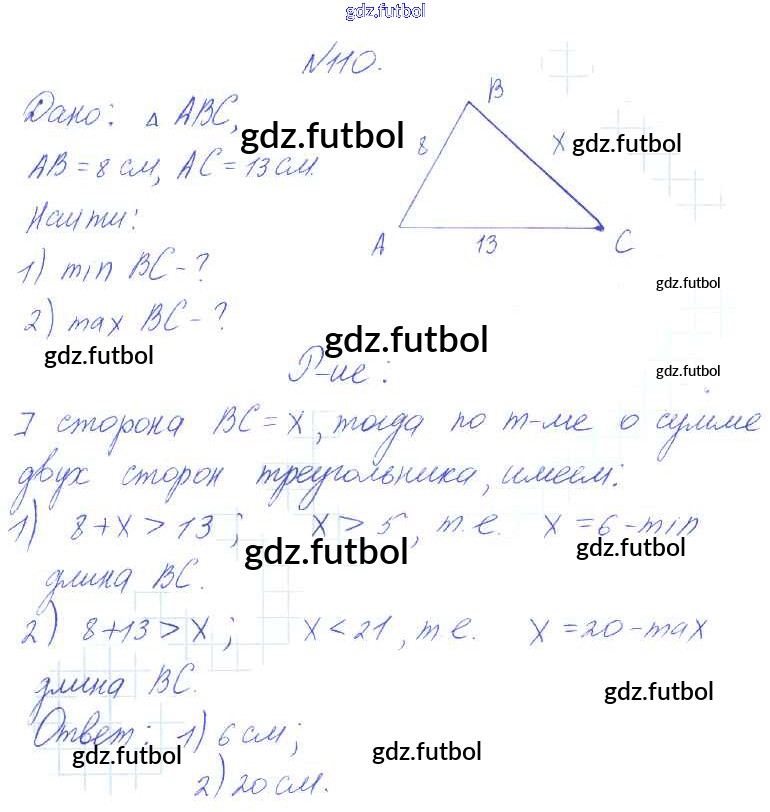 gdz.futbol
N110.
Дано: △ ABC, gdz.futbol
AB = 8 см, AC = 13 см.
Найти:
1) min BC - ?
2) max BC - ?
gdz.futbol
B
8
X gdz.futbol
A
13
C
gdz.futbol
gdz.futbol
gdz.futbol
Р-ие:
] сторона BC = X, тогда по т-ме о сумме
двух сторон треугольника, имеем:
1) 8 + X > 13; X > 5, т.е. X = 6 - min
gdz.futbol gdz.futbol
длина BC.
2) 8 + 13 > X; X < 21, т.е. X = 20 - max
длина BC.
gdz.futbol
Ответ: 1) 6 см;
gdz.futbol gdz.futbol
2) 20 см.